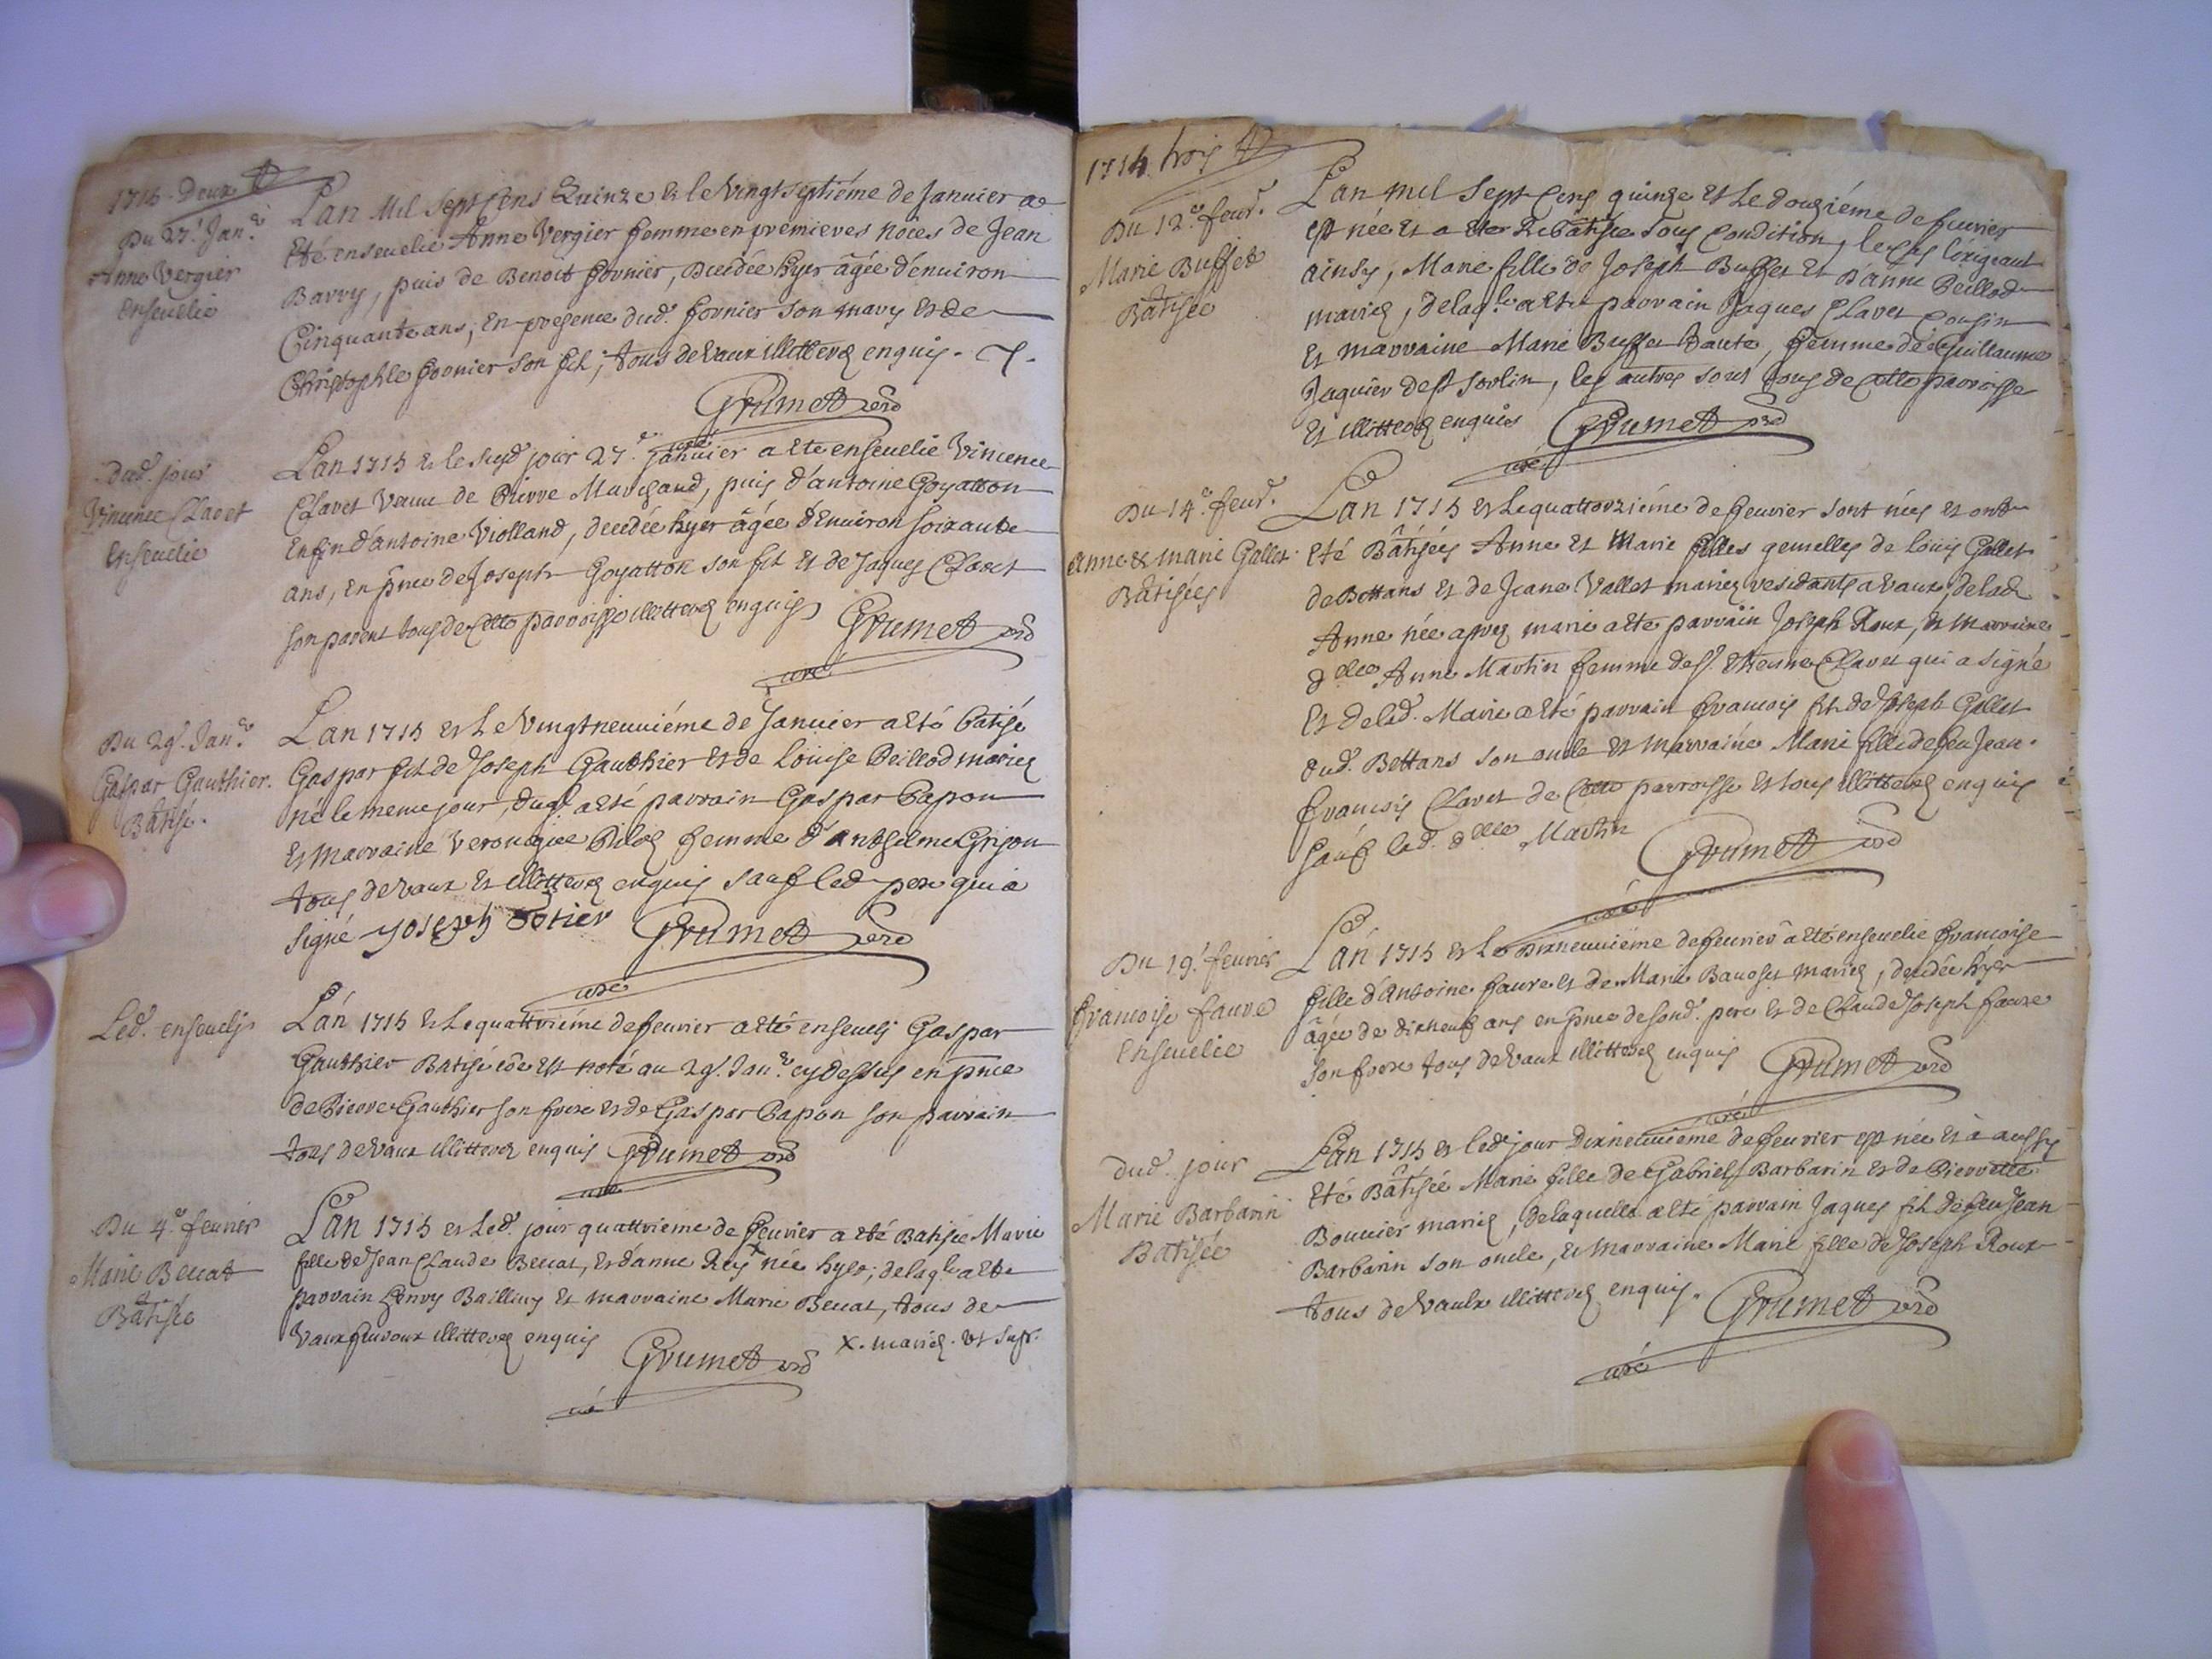 1715 Deux
Du 27e Janr.
Anne Vergier
Enseuelie
Lan Mil Sept Cens Quinze & le Vingt septiéme de Januier a
Eté enseuelie Anne Vergier femme en premieres noces de Jean
Barry, puis de Benoit fornier, Decedée hyer âgée d'enuiron
Cinquante ans, En presence dud. fornier son mary Et de
Christophle fornier son fils, tous de Vaux illitterez enquis.
Grumet
curé
Dud. jour
Vincence Clavet
Enseuelie
Lan 1715 & le susd. jour 27e januier a Eté enseuelie Vincence
Clavet Vauue de Pierre Marchand, puis d'antoine Goyatton
Enfin d'antoine Violland, decedée hyer âgée d'Enuiron soixante
ans, en pñce de Joseph Goyatton son fils Et de Jaques Clavet
son parent tous de Cette parroisse illitterez enquis
Grumet
curé
Du 29e Janr.
Gaspar Gauthier.
Batisé.
Lan 1715 & Le Vingt neuuiéme de Januier a Eté batisé
Gaspar fils de Joseph Gauthier Et de Loüise Peillod mariez
né le meme jour, duql. a Eté parrain Gaspar Papon
Et marraine Veronique Pilloz femme d'anthelme Grijon
tous de Vaux Et illitterez enquis sauf led. pere qui a
signé Joseph Gotier Grumet
curé
Led. enseuelj
Lán 1715 & Le quattriéme de feurier a Eté enseuelj Gaspar
Gauthier Batisé coe Est noté au 29e Janr. cy dessus en pñce
de Pierre Gauthier son frere Et de Gaspar Papon son parrain
tous de Vaux illitterez enquis Grumet
curé
Du 4e feurier
Marie Beccat
Bâtisée
Lan 1715 & Led. jour quattriéme de feurier a eté Batisée Marie
fille de Jean Claude Beccat, Et d'anne Rey x née hyer, de laqle. a Eté
parrain Henry Bailluy Et marraine Marie Beccat, tous de
Vaux feuroux illitterez enquis
x. mariez. Vt supr.
Grumet
curé
1715 trois
Du 12e feur.
Marie Buffet
Batisée
Lan mil Sept Cens quinze Et Le douziéme de feurier
est née Et a Eté Rebâtisée sous condition, le cas l'éxigeant
ainsy, Marie fille de Joseph Buffet Et D'anne Peillod
mariez, de laqle. a Eté parrain Jaques Clavet cousin
Et marraine Marie Buffet tante, femme de Guillaume
Jaquier de St Sorlin, les autres sont tous de Cette parroisse
Et illitterez enquis Grumet
curé
Du 14e feur.
Anne & Marie Gallet
Batisées
Lan 1715 & Le quattorziéme de feurier sont nées et ont
Eté Bâtisées Anne Et Marie filles gemelles de Loüis Gallet
de Bettans Et de Jeane Vallet mariez residants a Vaux, de lad.
Anne née apres marie a Eté parrain Joseph Roux, Et Marraine
dlle Anne Martin femme de Sr. Etienne Clavet qui a signé
Et de lad. Marie a Eté parrain francois fils de Joseph Gallet
dud. Bettans son oncle Et Marraine Marie fille de feu Jean
francois Clavet de Cette parroisse Et tous illitterez enquis
sauf lad. dlle Martin Grumet
curé
Du 19e feurier
francoise faure
Enseuelie
Lán 1715 & Le Dixneuuiéme de feurier a Eté enseuelie francoise
fille d'Antoine faure et de Marie Bauoset mariez, decedée hyer
âgée de dixneuf ans en pñce de sond. pere Et de Claude Joseph faure
son frere tous de Vaux illitterez enquis Grumet
curé
Dud. jour
Marie Barbarin
Batisée
Lan 1715 & led. jour Dixneuuieme de feurier est née Et a aussy
Eté Bâtisée Marie fille de Gabriel Barbarin Et de Pierrette
Bouuier mariez, de laquelle a Eté parrain Jaques fils de feu Jean
Barbarin son oncle, Et marraine Marie fille de Joseph Roux
tous de Vaulx illitterez enquis. Grumet
curé